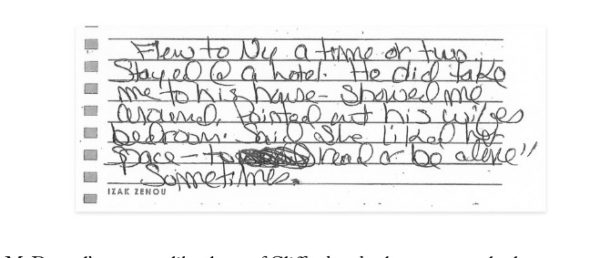 Flew to NY a time or two.
Stayed @ a hotel. He did take
me to his house - showed me
around, pointed out his wifes
bedroom. Said she liked her
space - to read or be alone"
Sometimes.
IZAK ZENOU